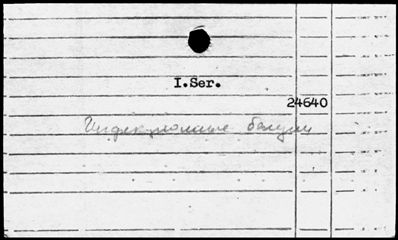 I.Ser.
24640
Инфекционные болезни